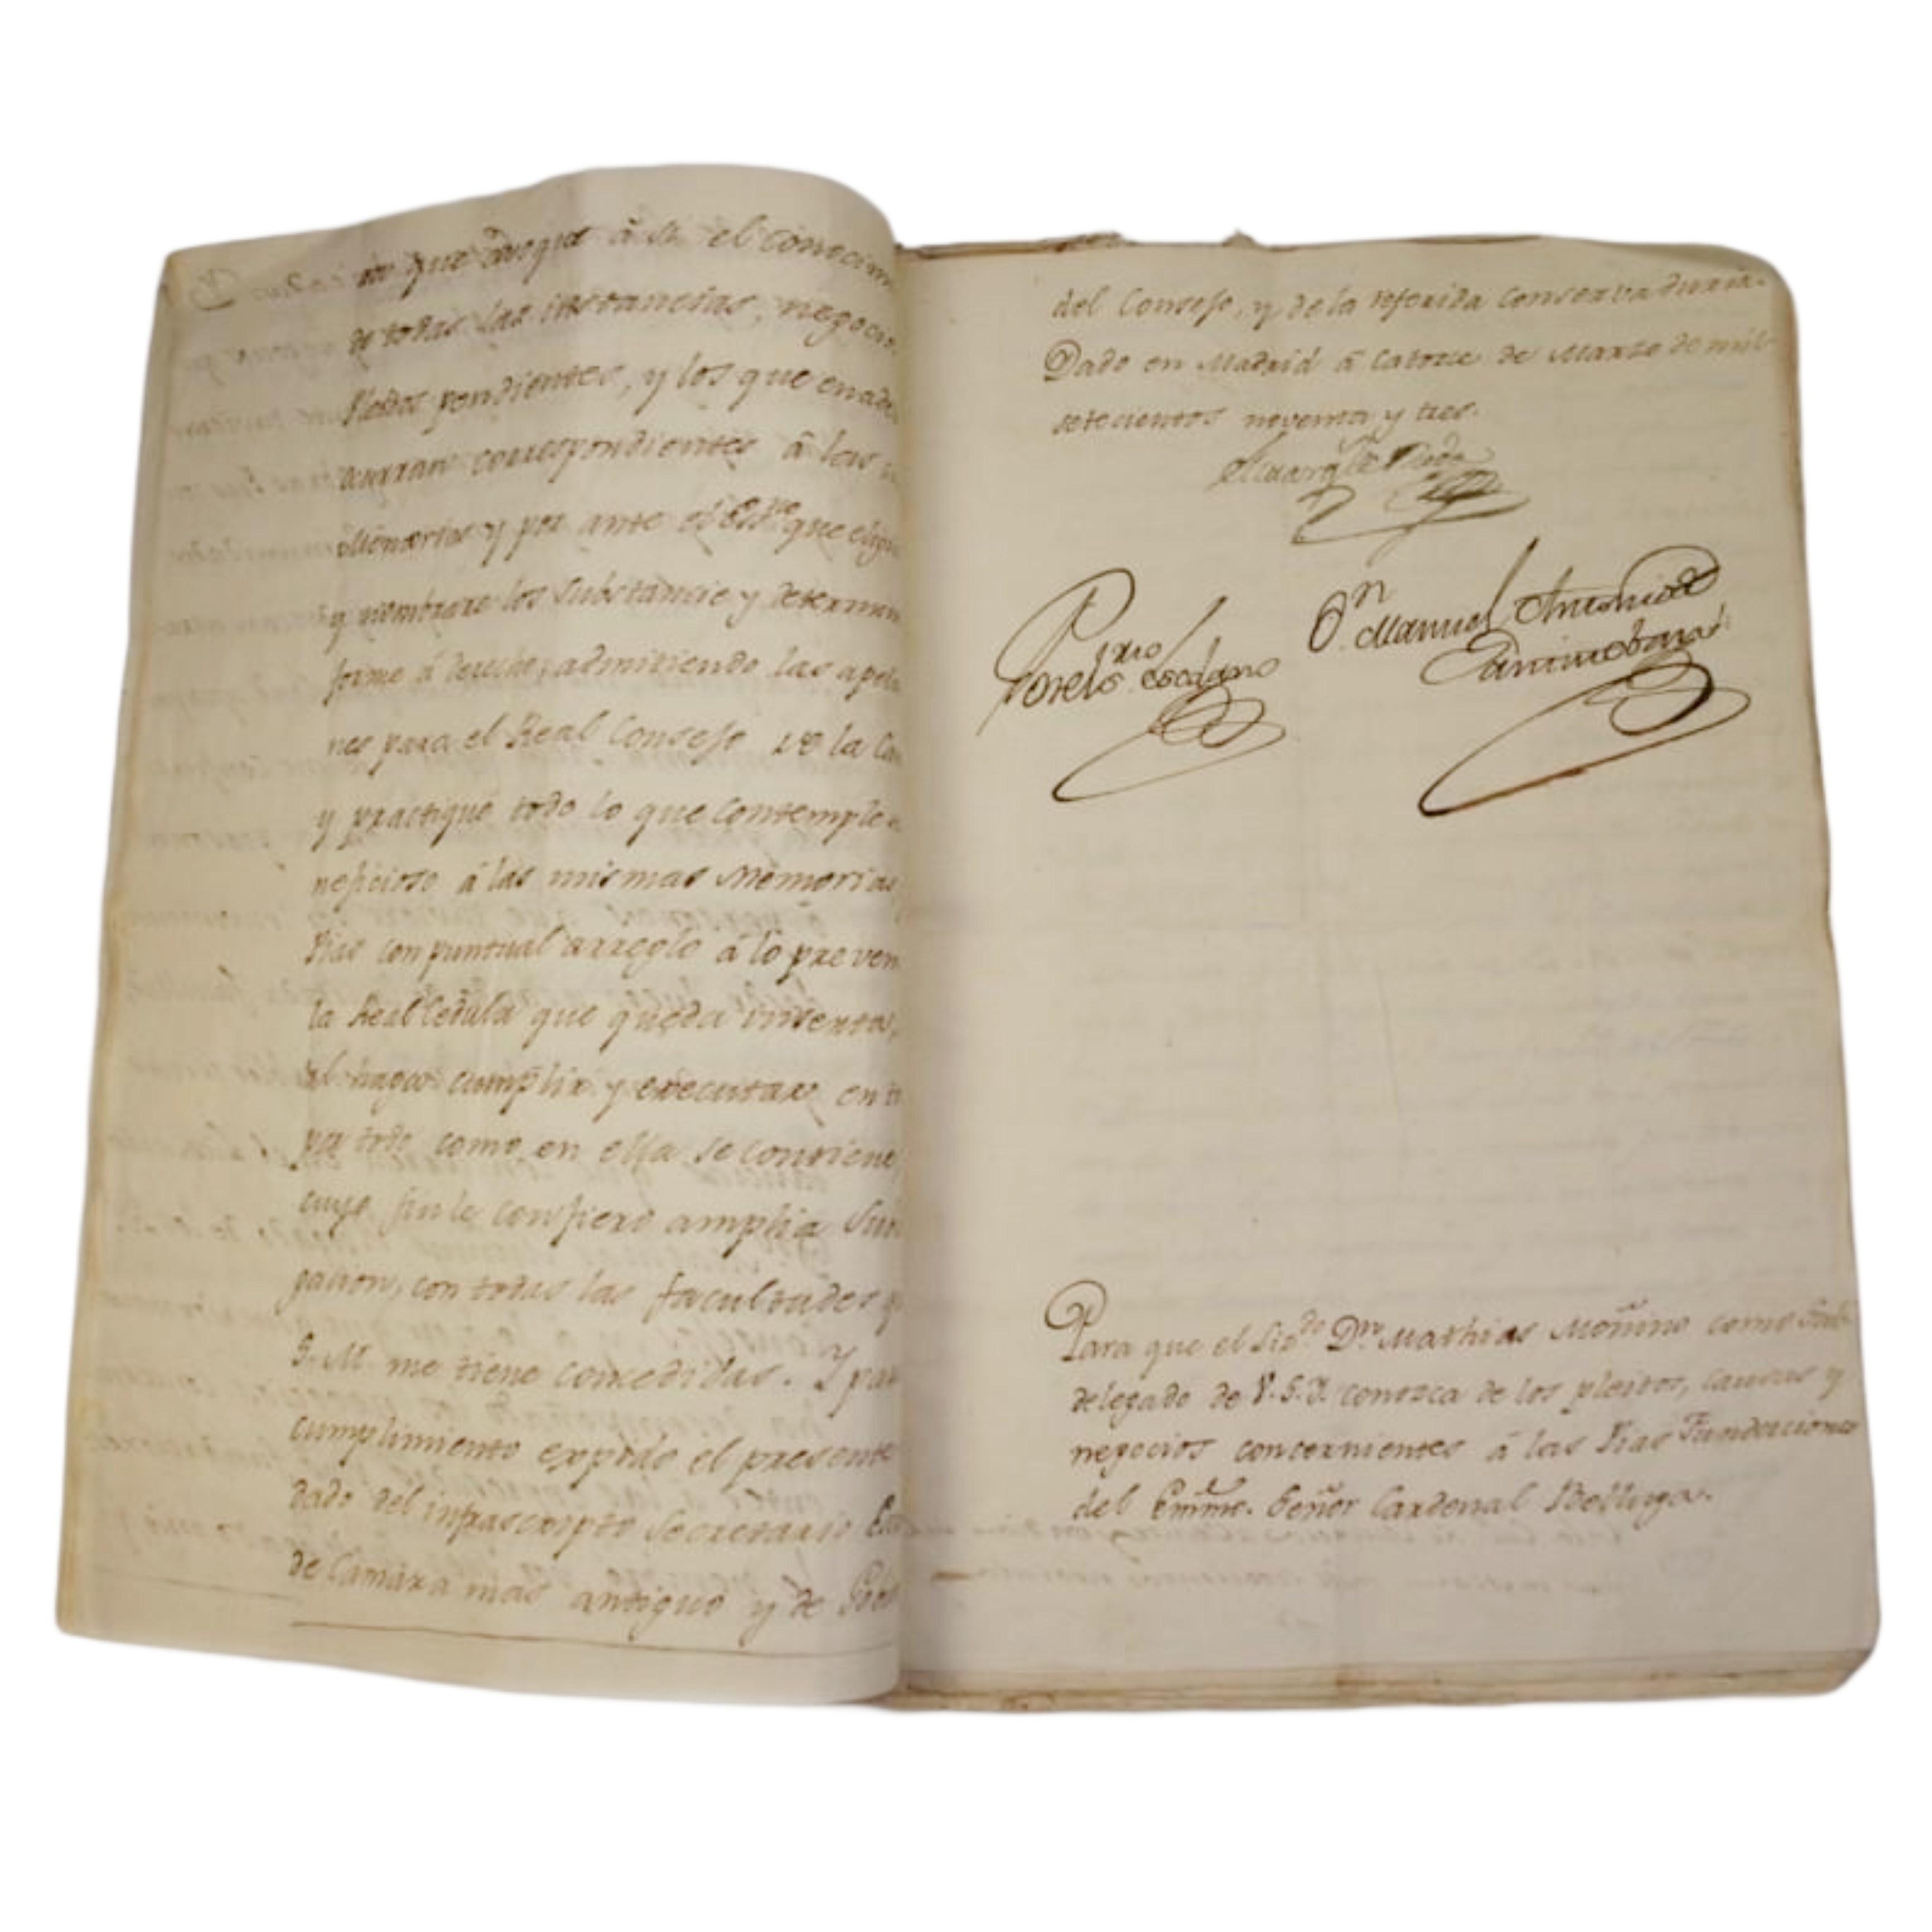 que avoque à si el conocim
de todas las instancias, negocios
Pleitos pendientes, y los que en ade
ocurran correspondientes â las
Memorias y por ante el Essno. que elijie
y nombrare los Substancie y determin
forme á derecho, admitiendo las apela
nes para el Real Consejo de la Ca
y practique todo lo que contemple
neficioso á las mismas Memorias
Pias con puntual arreglo á lo preven
la Real Cedula que queda inserta,
haga cumplir y executar en to
por todo como en ella se contiene
cuyo fin le confiero amplia Sub
gacion, con todas las facultades q
S. M. me tiene concedidas. Y para
cumplimiento expido el presente
dado del infrascripto Secretario Es
de Camara mas antiguo y de Gob
del Consejo, y de la referida Conservaduria.
Dado en Madrid â catorce de Marzo de mil
setecientos noventa y tres.
Pedro
Escolano
Dn. Manuel Antonio de
Para que el Licdo. Dn. Mathias Moñino como Sub
delegado de V.S.I. conozca de los pleitos, causas y
negocios concernientes á las Pias Fundaciones
del Emmo. Señor Cardenal Belluga.